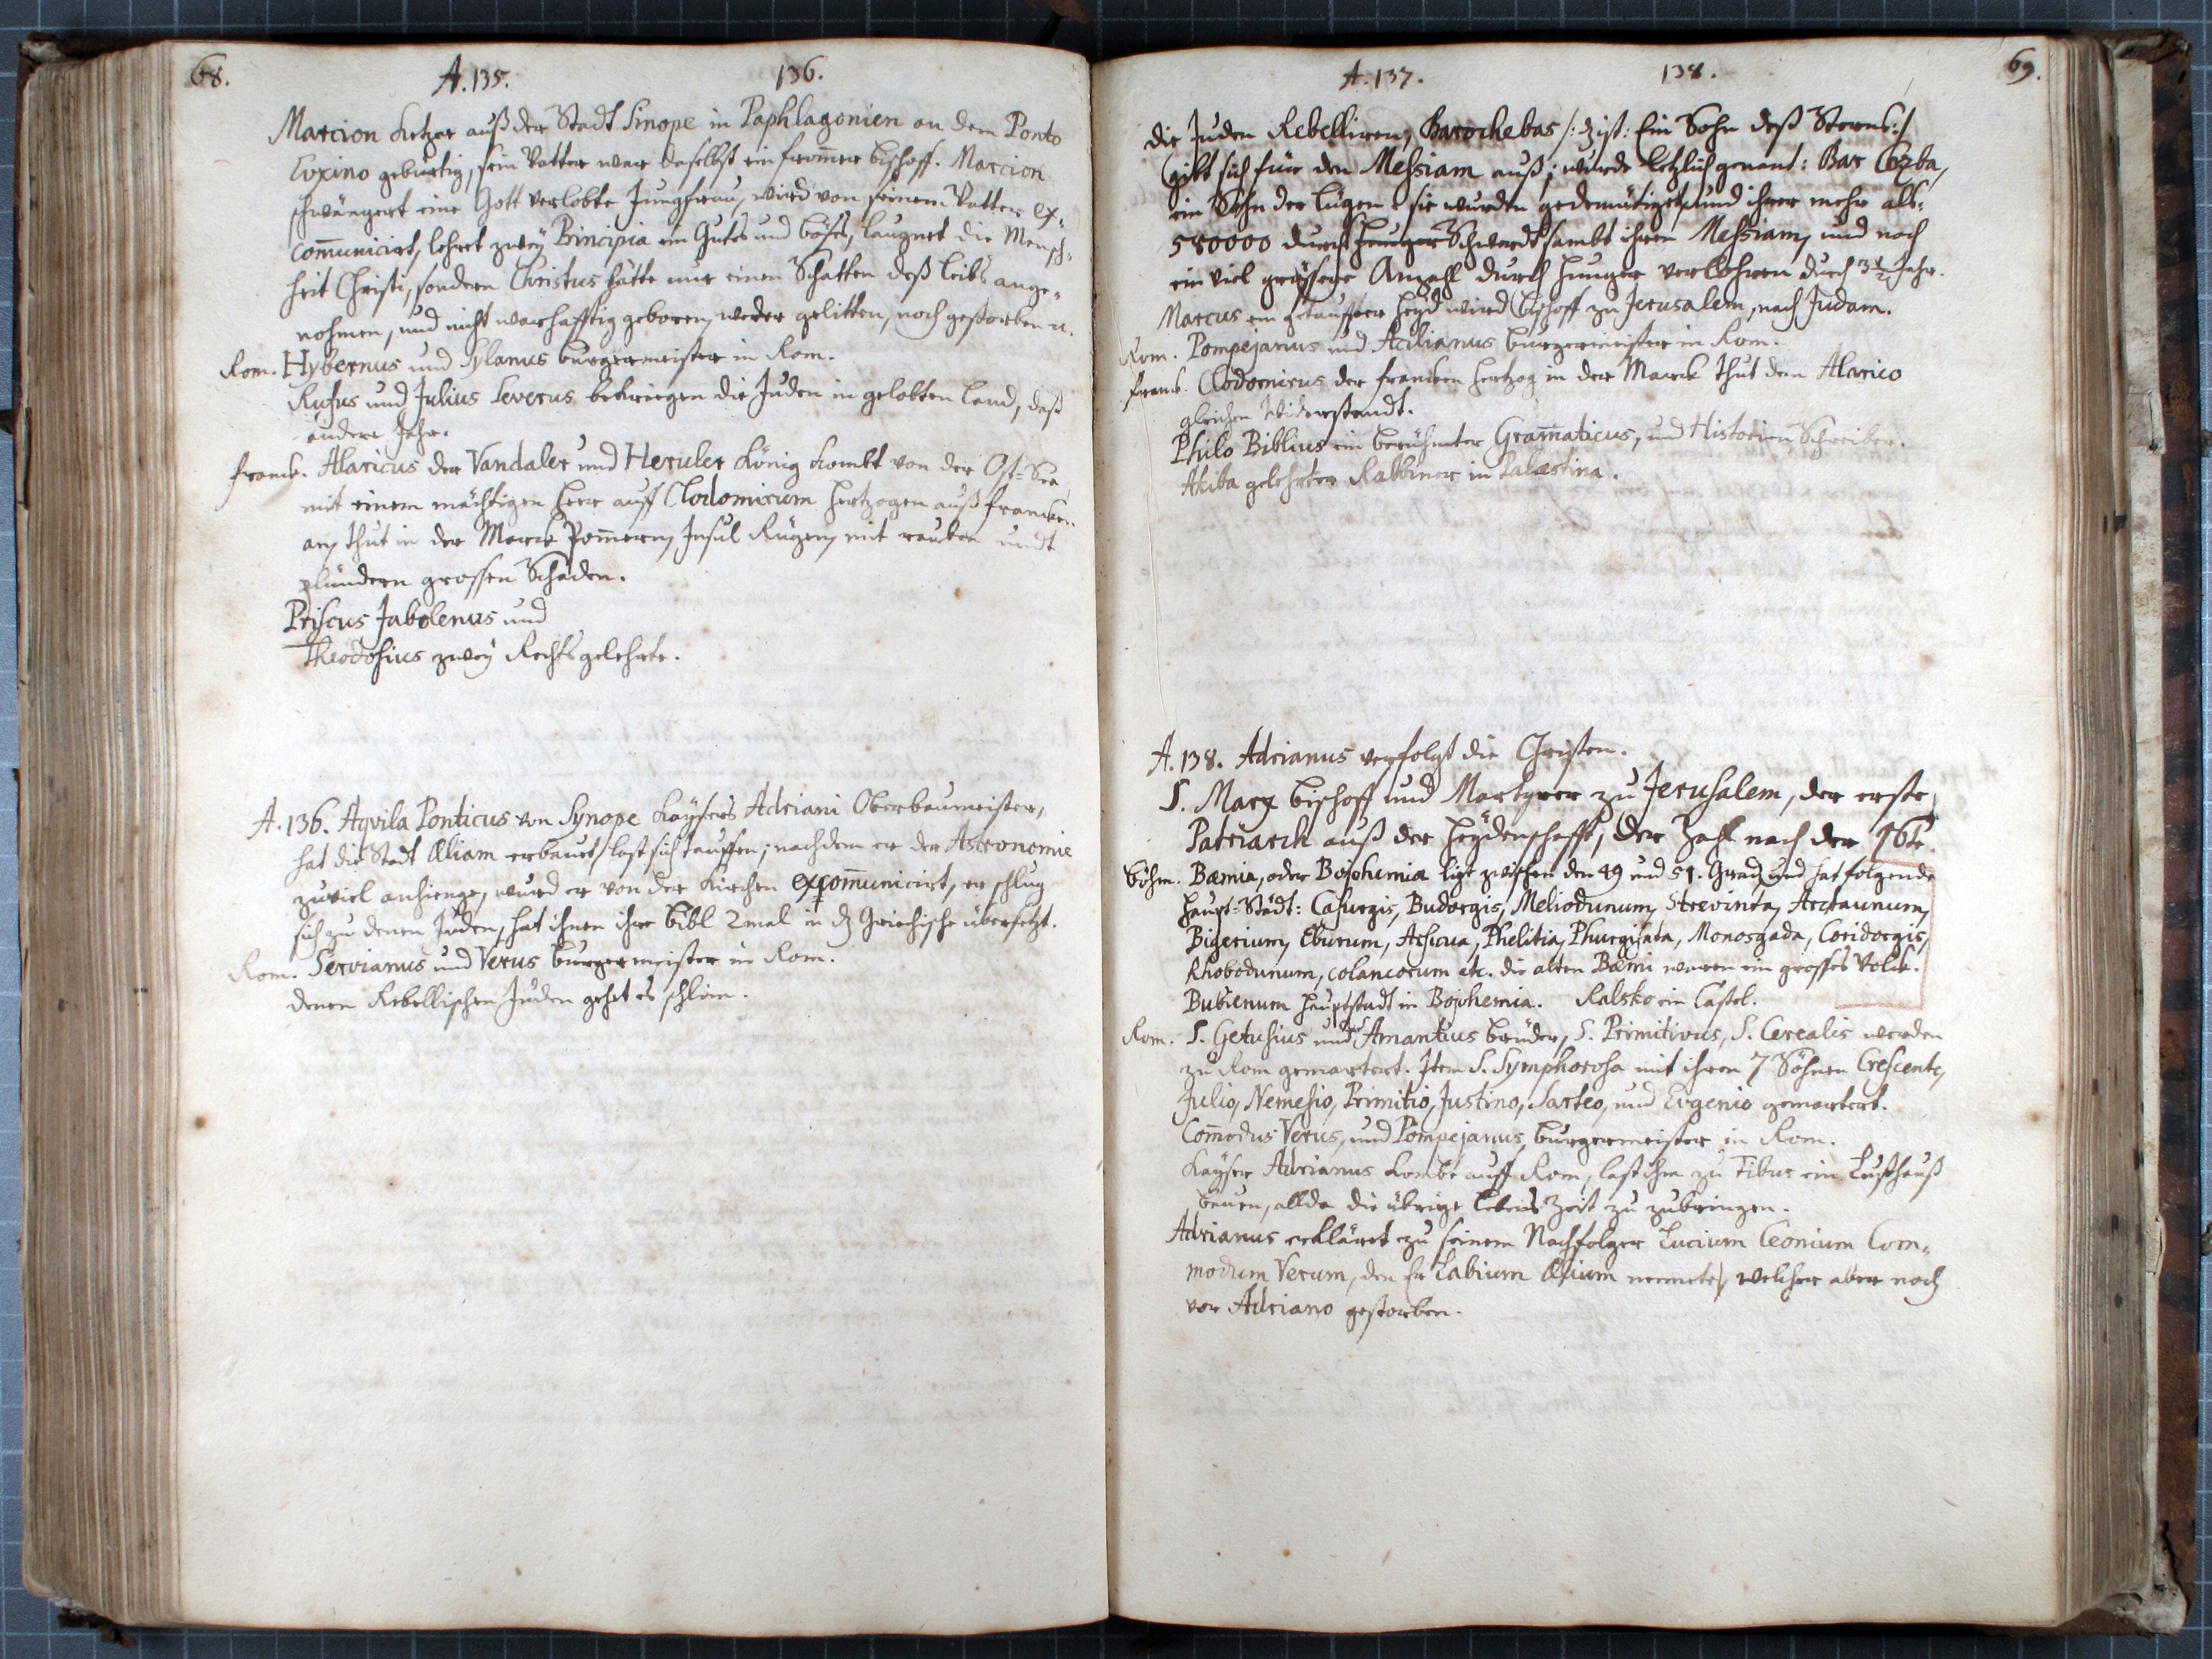 68.
A. 135. 136.
Marcion Ketzer auß der Stadt Sinope in Paphlagonien an dem Ponto
Euxino gebürtig, sein Vatter war daselbst ein from̄er bischoff. Marcion
schwängert eine Gott verlobte Jungfrau, wird von seinem Vatter ex-
com̄unicirt, lehret zwey Principia ein Gutes und böses, laugnet die Mensch-
heit Christi, sondern Christus hätte nur einen Schatten deß leibs ange-
nohmen, und nicht warhafftig geboren, weder gelitten, noch gestorben
Rom. Hybernus und Sylanus burgermeister in Rom.
Rufus und Julius Severus bekriegen die Juden in gelobten Land, daß
andere Jahr.
Franck. Alaricus der Vandaler und Heruler König kombt von der Ost-See
mit einem mächtigen heer auff Clodomirum hertzogen auß francken
an, thut in der Marck Pom̄ern, Insul Rügen, mit rauben undt
plündern grossen Schaden.
Priscus Jabolenus und
Theodosius zwey Rechtsgelehrte.
A. 136. Aqvila Ponticus von Synope Kaysers Adriani Oberbaumeister,
hat die Stadt Æliam erbauet, last sich tauffen; nachdem er der Astronomie
zuviel anhienge, wurd er von der Kirchen excom̄unicirt, er schlug
sich zu denen Juden, hat ihnen ihre bibl 2mal in dz Griechische übersetzt.
Rom. Servianus und Verus burgermeister in Rom.
denen Rebellischen Juden gehet es schlim̄.
A. 137. 138. 69.
die Juden Rebelliren, Barochebas /: dz ist: Ein Sohn deß Sterns :/
gibt sich für den Messiam auß; wurde letzlich genant: Bar Cozba,
ein Sohn der lügen. sie wurden gedemütiget, und ihrer mehr als
580000 durch hunger Schwerdt sambt ihren Messiam, und noch
ein viel grössere Anzahl durch hunger verlohren durch 3½ Jahr.
Marcus ein getauffter heyd wird bischoff zu Jerusalem, nach Judam.
Rom. Pompejanus und Acilianus burgermeister in Rom.
Franck. Clodomirus der francken hertzog in der Marck thut dem Alarico
gleichen Widerstandt.
Philo Biblius ein berühmter Gram̄aticus, und Historien Schreiber.
Akiba gelehrter Rabbiner in Palæstina.
A. 138. Adrianus verfolgt die Christen.
S. Marx bischoff und Martyrer zu Jerusalem, der erste
Patriarch auß der heydenschafft, der Zahl nach der 16te.
böhm. Bæmia, oder Bojohemia ligt zwischen den 49 und 51. Grad, und hat folgende
haupt-Städt: Casurgis, Budorgis, Meliodunum, Strevinta, Arctaunum,
Bigerium, Eburum, Arsicua, Phelitia, Phurgisata, Monosgada, Coridorgis,
Rhobodunum, colancorum etc. die alten Bæmi waren ein grosses Volck.
Bubienum hauptstadt in Bojohemia. Ralsko ein Castel.
Rom. S. Getulius und Amantius brüder, S. Primitivus, S. Cerealis werden
zu Rom gemartert. Item S. Symphorosa mit ihren 7 Söhnen Crescente,
Julio, Nemesio, Primitio, Justino, Sarteo, und Eugenio gemartert.
Com̄odus Verus, und Pompejanus burgermeister in Rom.
Kayser Adrianus kombt auff Rom, last ihm zu Tibur ein Lusthauß
bauen, allda die übrige lebens Zeit zu zubringen.
Adrianus erkläret zu seinem Nachfolger Lucium Ceonium Com-
modum Verum, den Er Labium Ælium nennete, welcher aber noch
vor Adriano gestorben.